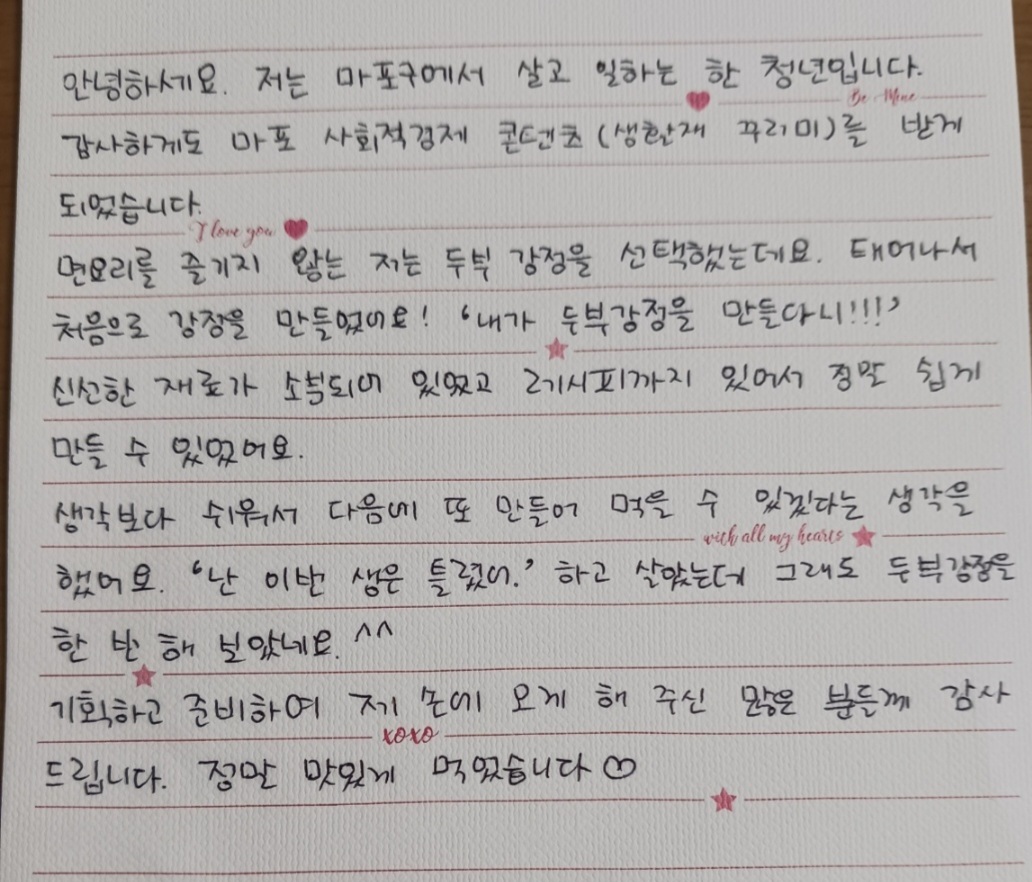 안녕하세요. 저는 마포구에서 살고 일하는 한 청년입니다.
Be Mine
감사하게도 마포 사회적경제 콘텐츠 (생활재 꾸러미)를 받게
되었습니다.
I love you
면요리를 즐기지 않는 저는 두부 강정을 선택했는데요. 태어나서
처음으로 강정을 만들었어요! '내가 두부강정을 만들다니!!!'
신선한 재료가 소분되어 있었고 레시피까지 있어서 정말 쉽게
만들 수 있었어요.
생각보다 쉬워서 다음에 또 만들어 먹을 수 있겠다는 생각을
with all my hearts
했어요. '난 이번 생은 틀렸어.' 하고 살았는데 그래도 두부강정을
한 번 해 보았네요. ^^
기획하고 준비하여 제 손에 오게 해 주신 많은 분들께 감사
xoxo
드립니다. 정말 맛있게 먹었습니다 ♡